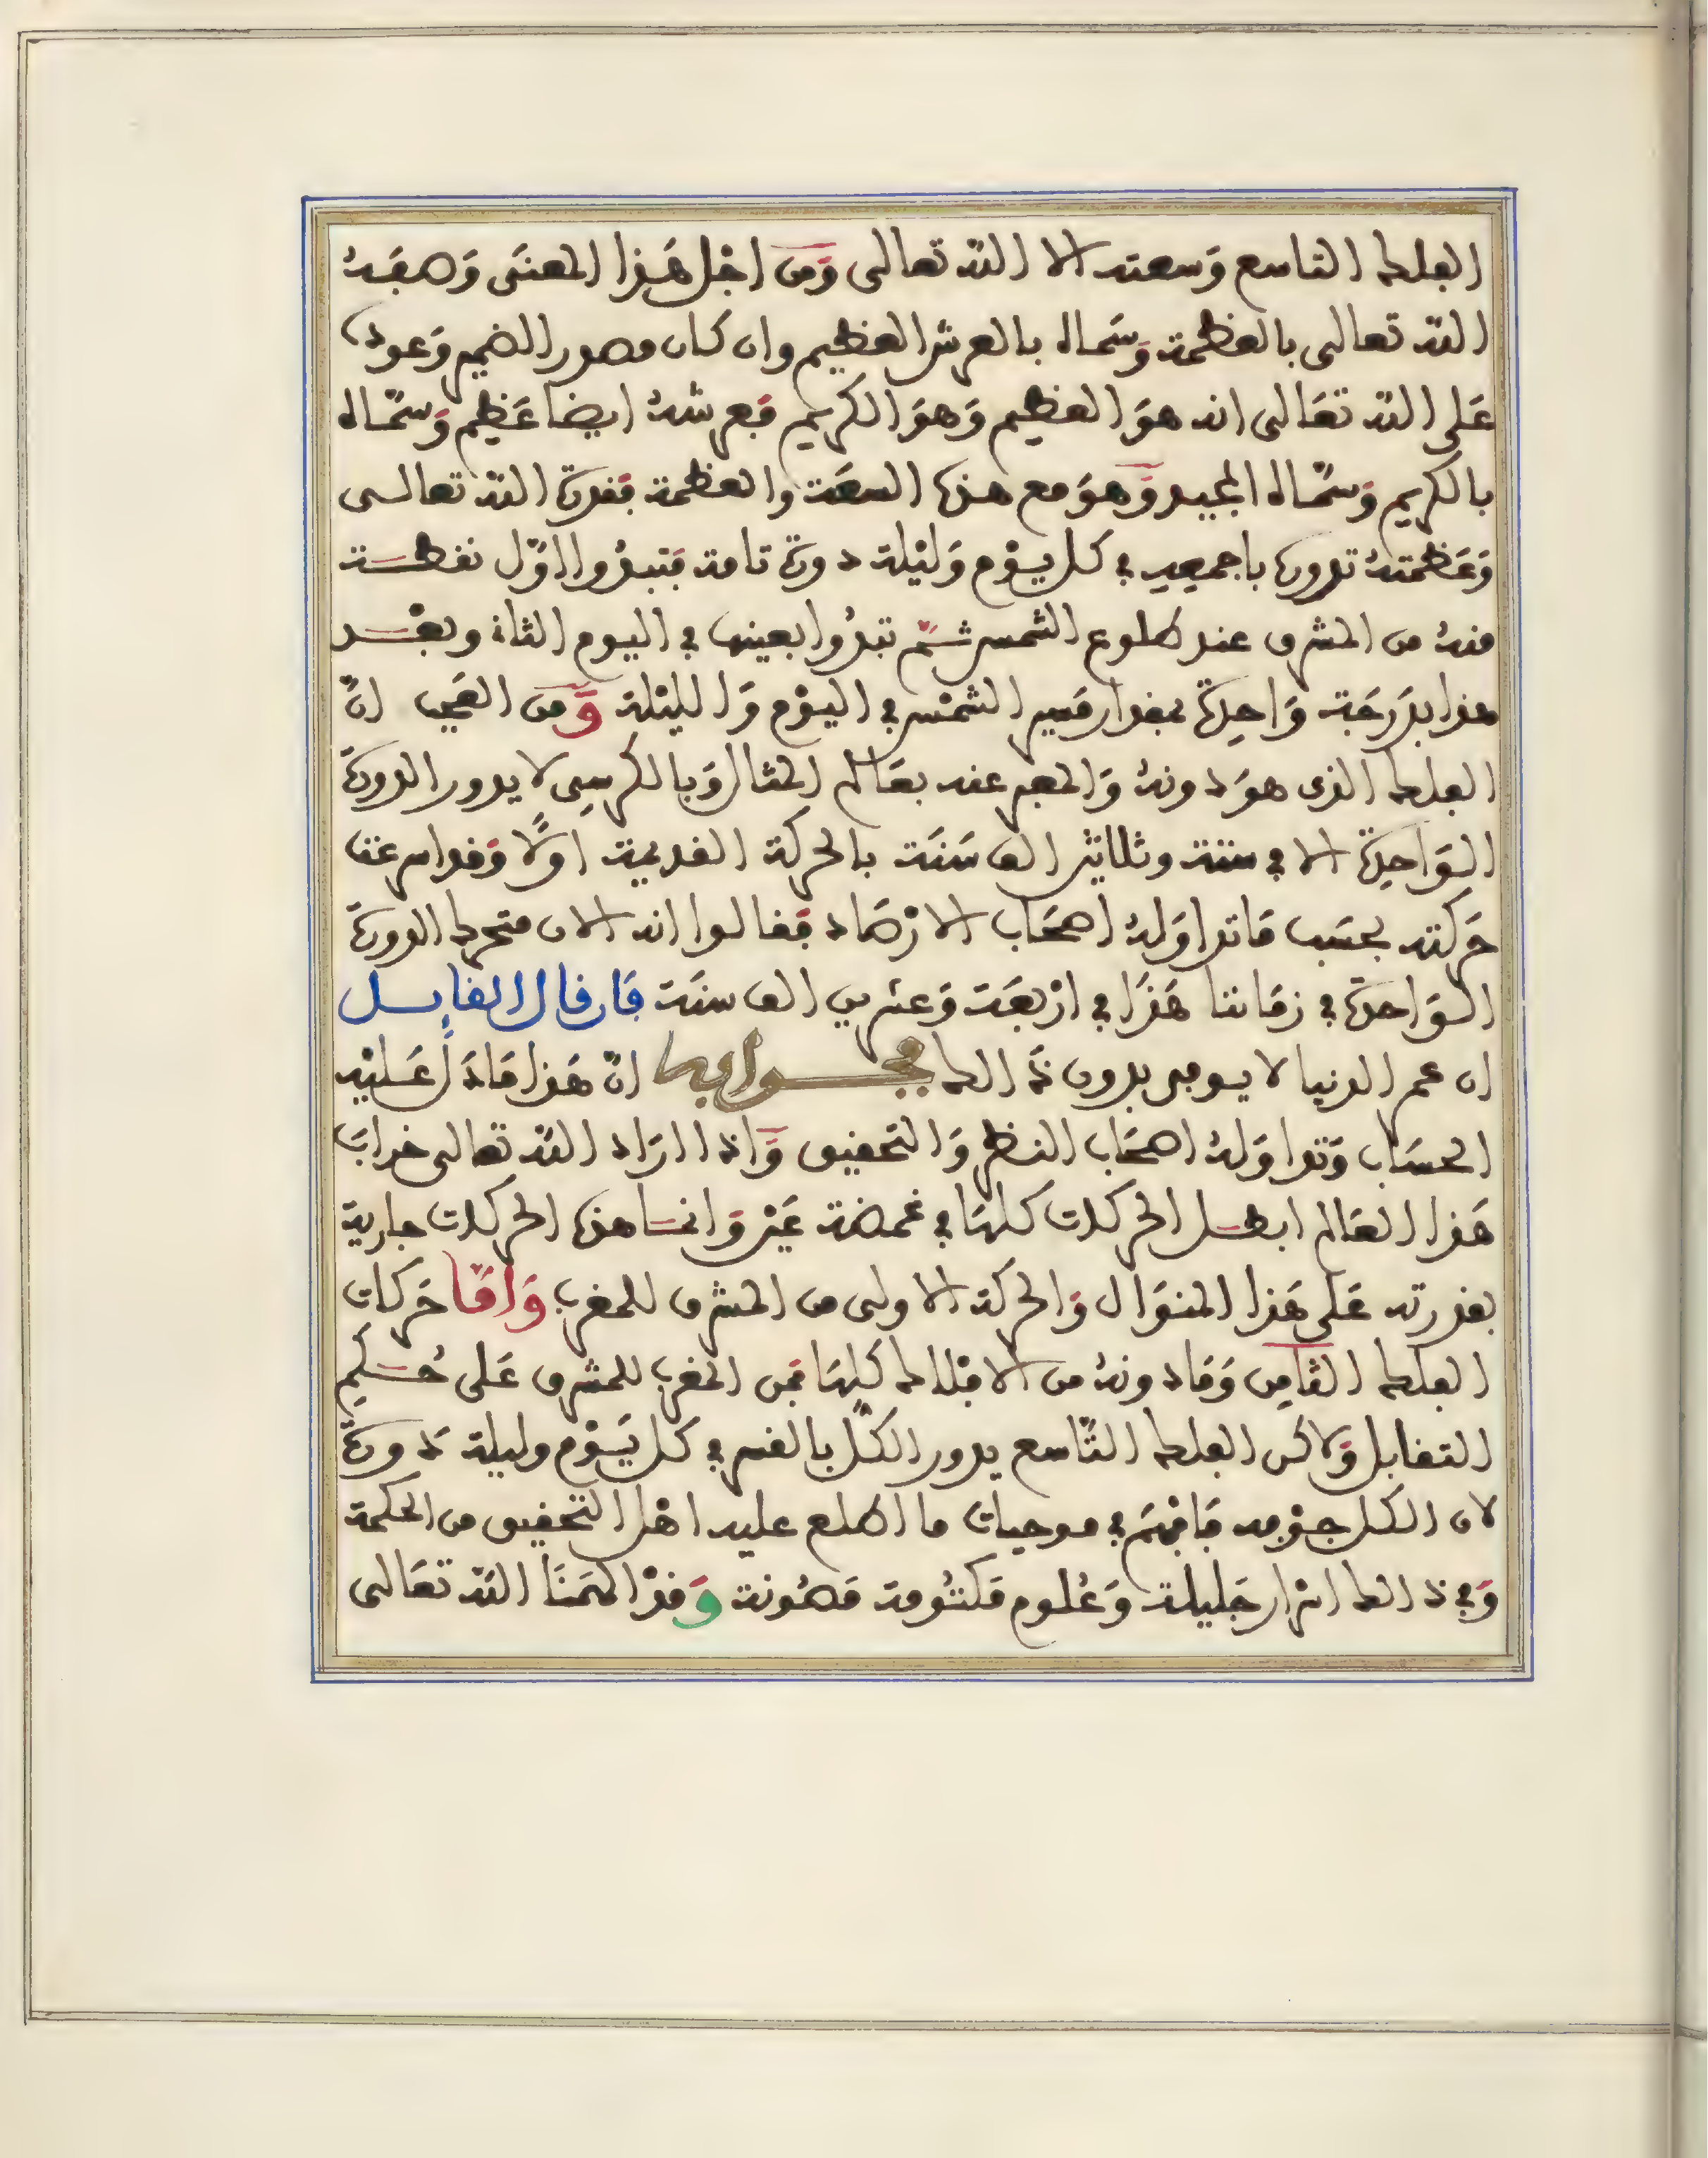 الفلك التاسع وَسعته الا الله تعالى وَمن اجْل هَذا المعنَى وَصفَهُ
الله تعالى بالعظمة وَسَماه بالعرش العظيم وان كان مصور الضمير وَعوده
عَلى الله تعَالى انه هوَ العظيم وَهوَ الكريم فَعرشهُ ايضا عَظيم وَسمَّاه
بالكريم وَسمَّاه المجيد وَهوَ مع هذه السعَة والعظمة فقدرة الله تعالى
وَعَظمتهُ تدوره باجمعه في كل يوْم وَليْلة دورة تامة فتبدُوا اوّل نقطة
منهُ من المشرق عند طلوع الشمس ثم تبدُوا بعينها في اليوم الثاني وبعْد
هذا بدَرَجَة وَاحِدة بمقدار مَسير الشمْس في اليوْم وَالليْلة وَمن العَجيب انّ
الفلك الذى هوَ دونهُ وَالمعبر عنه بعَالم المثال وَبالكرسِى لا يدور الدورة
الوَاحِدة الا في ستة وثلاثين الف سَنَة بالحركة القديمة اولًا وَقد اسرعت
حَركته بحسَب مَا تداوَلهُ اصحَاب الارْصَاد فَقالوا انه الان متحرك الدورة
الوَاحدة في زمَاننا هَذَا في ارْبعَة وَعشرين الف سنَة فَان قال القايل
ان عمر الدنيا لا يوفى بدون ذَلك فجوابه انّ هَذا مَا دَلَّ عَليْه
الحسَاب وَتداوَلهُ اصحَاب النظر وَالتحقيق وَاذا ارَاد الله تعالى خرابَ
هَذا العَالم ابطل الحركات كلهَا في غمضة عَيْن وَانما هذه الحركات جارية
بقدرته عَلى هَذا المنوَال وَالحركة الاولى من المشرق للمغرب وَامَّا حَركات
الفلك الثَّامِن وَمَا دونهُ من الافْلاك كلهَا فَمن المغرب للمشرق عَلى حُكم
التقابل وَلاكن الفلك التَّاسع يدور الكُلّ بالقسر في كل يَوْم وليلة دَورة
لان الكل جوْفه فَافْهَم في موجبات ما اطلع عليه اهْل التحقيق من الحكمة
وَفي ذلك اسْرار جَليلة وَعُلوم مَكتُومة مَصُونة وَقدْ الهَمنَا الله تعَالى